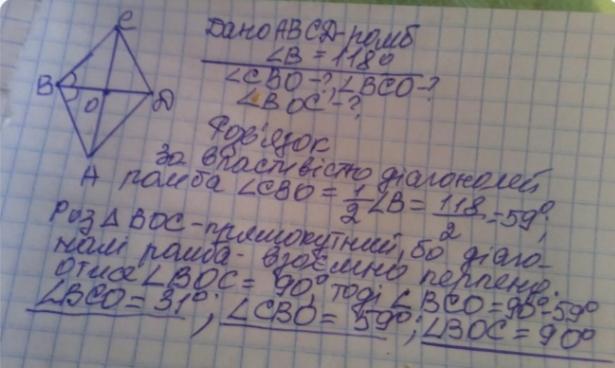 C
B
O
D
A
Дано ABCD-ромб
∠B = 118°
∠CBO-?, ∠BCO-?
∠BOC-?
Розв'язок
За властивістю діагоналей
ромба ∠CBO = 1/2 ∠B = 118/2 = 59°;
Роз △ BOC - прямокутний, бо діаго-
налі ромба - взаємно перпенд.
Отже ∠BOC = 90°, тоді ∠BCO = 90°-59°
∠BCO = 31°; ∠CBO = 59°; ∠BOC = 90°